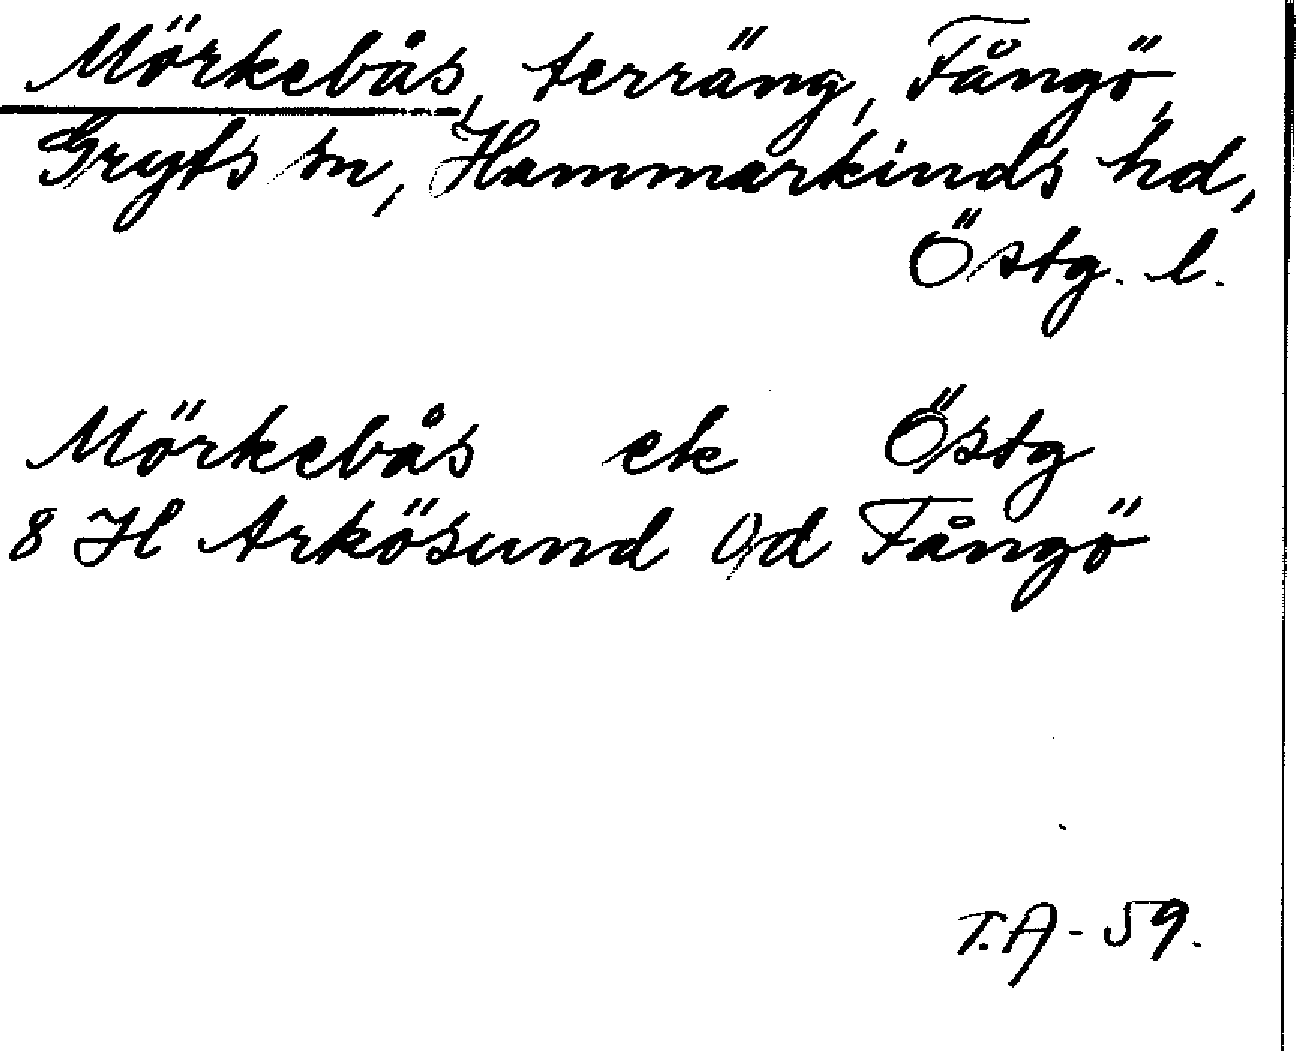 Mörkebås, terräng, Fångö,
Gryts sn, Hammarkinds hd,
Östg. l.
Mörkebås ek Östg
8 H Arkösund 0d Fångö
T.A - 59.